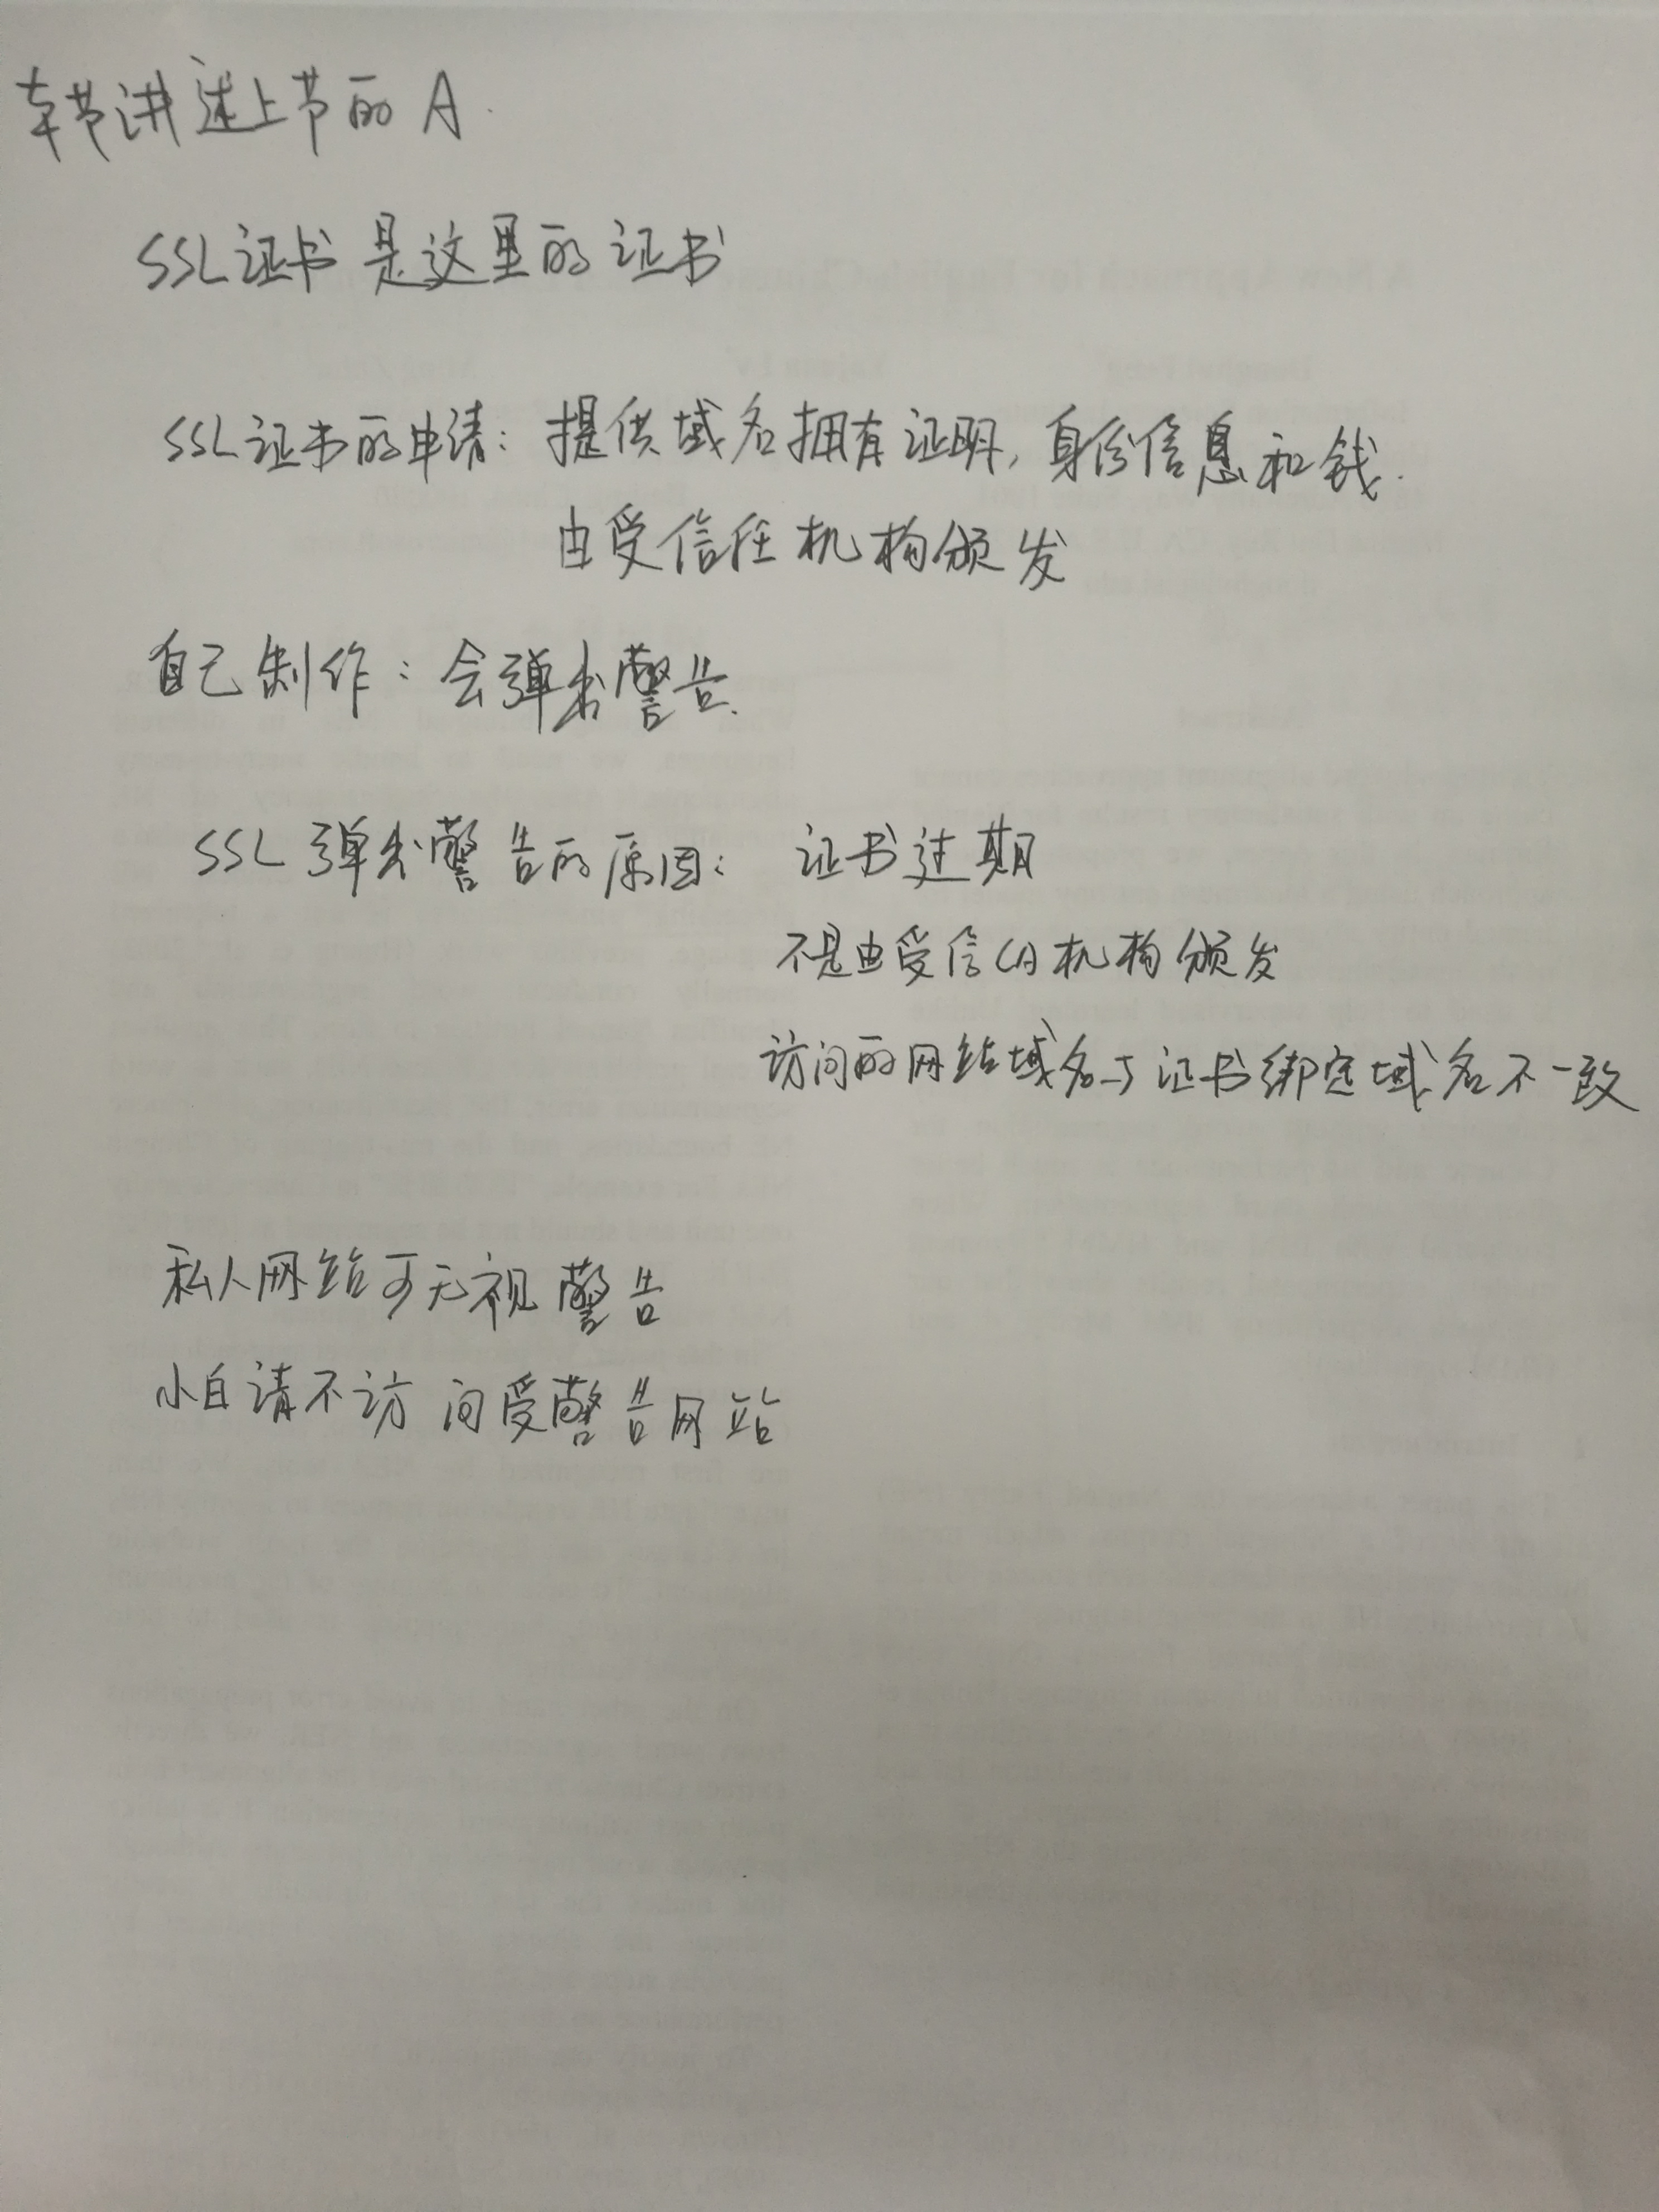 本节讲述上节的A.
SSL证书是这里的证书
SSL证书的申请：提供域名拥有证明，身份信息和钱.
由受信任机构颁发
自己制作：会弹出警告.
SSL弹出警告的原因：证书过期
不是由受信CA机构颁发
访问的网站域名与证书绑定域名不一致
私人网站可无视警告
小白请不访问受警告网站